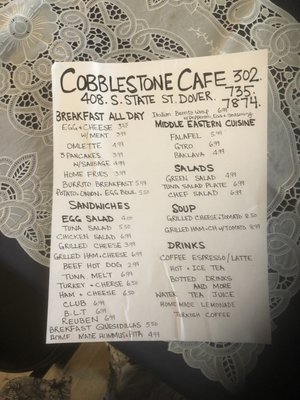 COBBLESTONE CAFE 302.
408. S. STATE ST. DOVER. 735.
7874.
BREAKFAST ALL DAY
EGG + CHEESE
W/ MEAT 3.99
OMLETTE 4.99
3 PANCAKES 3.99
W/ SAUSAGE 4.99
HOME FRIES 3.99
BURRITO BREAKFAST 5.99
POTATO, ONION, EGG BOWL 5.50
SANDWICHES
EGG SALAD 4.00
TUNA SALAD 5.50
CHICKEN SALAD 6.99
GRILLED CHEESE 3.99
GRILLED HAM + CHEESE 6.99
BEEF HOT DOG 2.99
TUNA MELT 6.99
TURKEY + CHEESE 6.50
HAM + CHEESE 6.50
CLUB 6.99
B.L.T 6.99
REUBEN 6.99
BREAKFAST QUESIDILLAS 5.50
HOME MADE HUMMUS + PITA 4.99
Indian Burrito Wrap 6.99
MIDDLE EASTERN CUISINE
FALAFEL 5.99
GYRO 6.99
BAKLAVA 4.99
SALADS
GREEN SALAD 4.99
TUNA SALAD PLATE 6.99
CHEF SALAD 6.99
SOUP
GRILLED CHEESE + TOMATO 8.50
GRILLED HAM + CH W/ TOMATO 8.99
DRINKS
COFFEE ESPRESSO/LATTE
HOT + ICE TEA
BOTTED DRINKS
AND MORE
WATER TEA JUICE
HOME MADE LEMONADE
TURKISH COFFEE